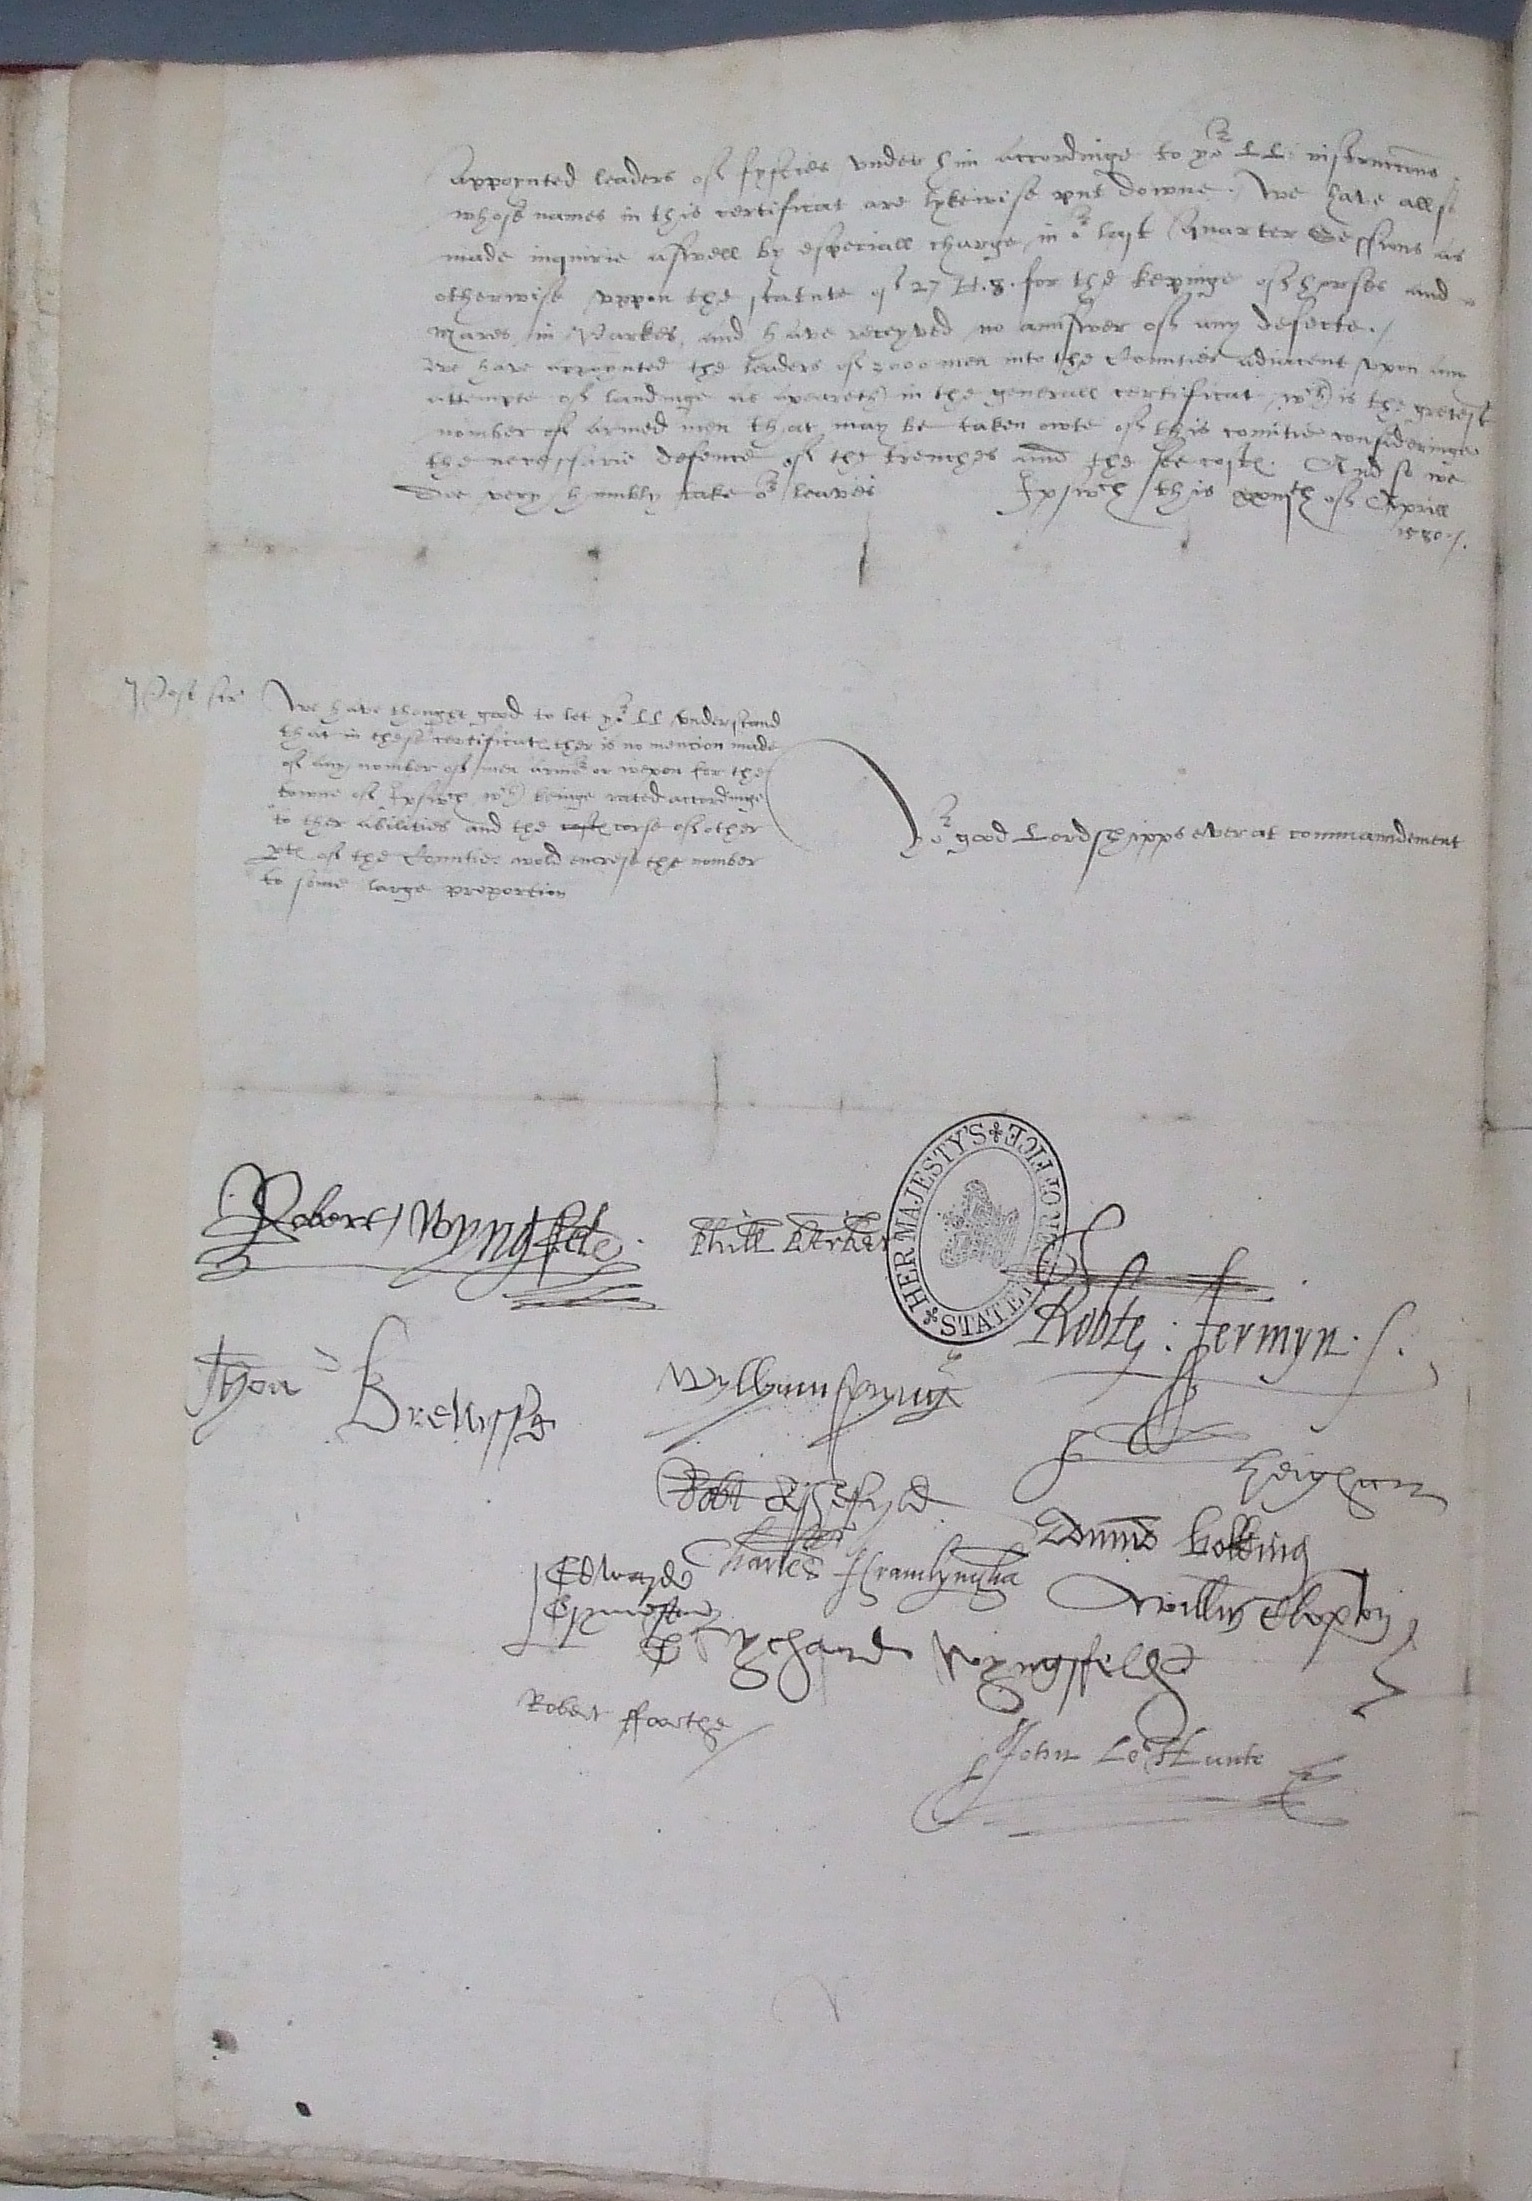 appoynted leaders of fyfties under him accordinge to yor LL instruccons
whose names in this certificat are lykewise put downe. We have allso
made inquirie aswell by especiall charge in or last Quarter Sessions as
otherwise uppon the statute of 27 H. 8. for the kepinge of horses and
Mares in Parkes, and have receyved no aunswer of any defecte./
We have appoynted the leaders of 2000 men into the Counties adiacent upon any
attempte of landinge as apeareth in the generall certificat wch is the gretest
nomber of armed men that may be taken owte of this countie consideringe
the necessarie defence of the trenches and the see coste. And so we
doe very humbly take or leaves Ipswch this of Aprill
1580./.
Post scr We have thought good to let yor LL understand
that in these certificates ther is no mention made
of any nomber of men armor or wepon for the
towne of Ipswch wch beinge rated accordinge
to ther abilities and the corse of other
ptes of the Countie wold encrese the nomber
to some large proportion
Yor good Lordshipps ever at commaundement
HER MAJESTY'S STATE PAPER OFFICE
Robert Wyngfelde
Phill Parker
Robte: Jermyn. S.
Thon Brewsse
Wyllyam Spryng
Heigham
Robt Asshefyld
Charles Framlyngha
Willm Clopton
Edwarde
Rychard Wyngffeld
Robert fforthe
John Le Hunte